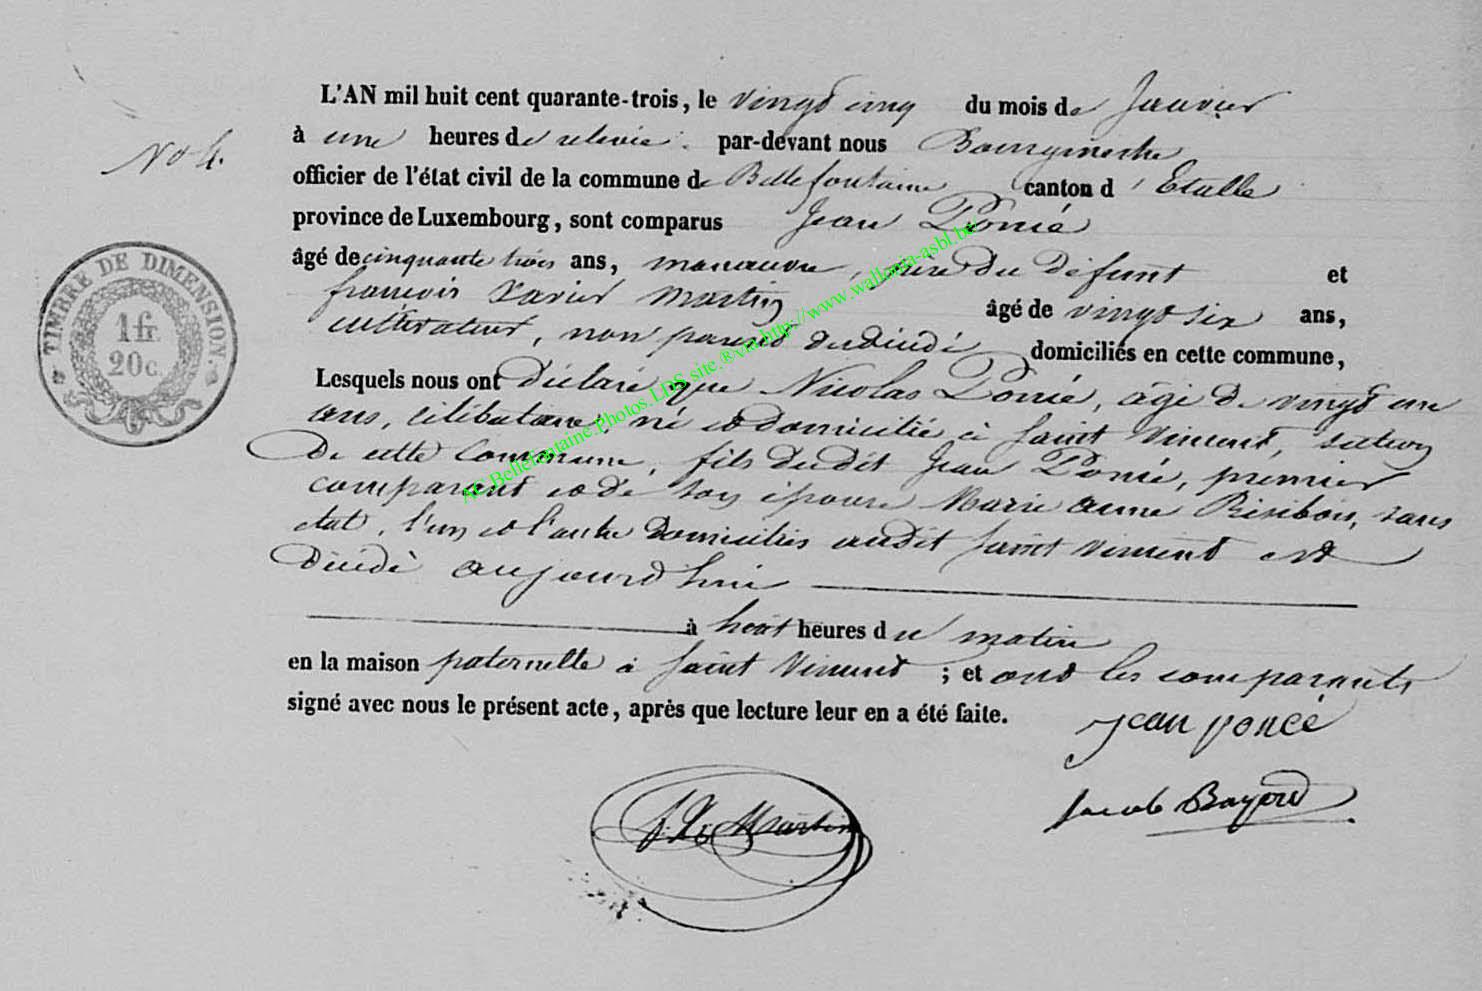 L'AN mil huit cent quarante-trois, le vingt cinq du mois de Janvier
No 4.
à une heures de relevée par-devant nous Bourgmestre
officier de l'état civil de la commune de Bellefontaine canton d'Etalle
province de Luxembourg, sont comparus Jean Poncé
âgé de cinquante trois ans, manœuvre, père du défunt et
françois Xavier Martin âgé de vingt six ans,
cultivateur, non parent du décédé domiciliés en cette commune,
TIMBRE DE DIMENSION.
1 fr.
20 c.
Lesquels nous ont déclaré que Nicolas Poncé, âgé de vingt un
ans, célibataire, né et domicilié à Saint Vincent, section
de cette Commune, fils dudit Jean Poncé, premier
comparant et de son épouse Marie anne Risibois, sans
état, l'un et l'autre domiciliés audit Saint Vincent est
décédé aujourd'hui
à huit heures du matin
en la maison paternelle à Saint Vincent ; et ont les comparants
signé avec nous le présent acte, après que lecture leur en a été faite.
jean poncé
Jacob Bayard
f. X. Martin
AC.Bellefontaine.Photos.LDS site.®via.http://www.wallonia-asbl.be/